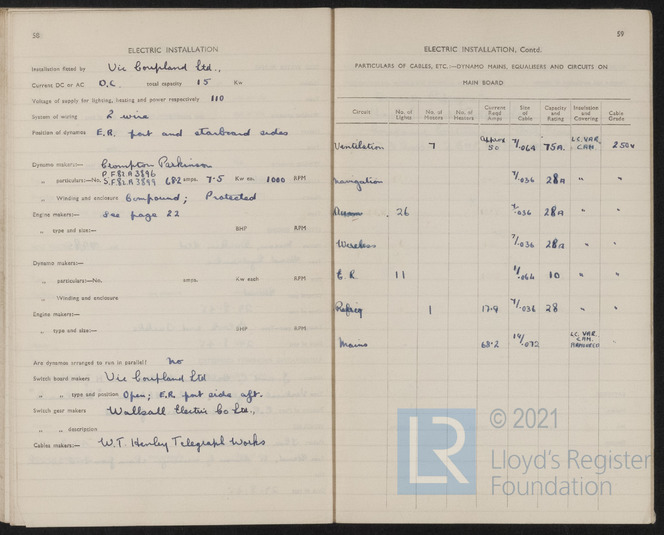 58
ELECTRIC INSTALLATION
Installation fitted by Vic Coupland Ltd.,
Current DC or AC D.C. total capacity 15 Kw
Voltage of supply for lighting, heating and power respectively 110
System of wiring 2 wire
Position of dynamos E.R. port and starboard sides
Dynamo makers:— Crompton Parkinson
P.F81A3896
„ particulars:—No. S.F81A3899 68.2 amps. 7.5 Kw ea. 1000 RPM
„ Winding and enclosure Compound; Protected
Engine makers:— See page 22
„ type and size:— BHP RPM
Dynamo makers:—
„ particulars:—No. amps. Kw each RPM
„ Winding and enclosure
Engine makers:—
„ type and size:— BHP RPM
Are dynamos arranged to run in parallel? No
Switch board makers Vic Coupland Ltd
„ „ type and position Open; E.R. port side aft.
Switch gear makers Wallsall Electric Co Ltd.,
„ „ description
Cables makers:— W.T. Henley Telegraph Works
59
ELECTRIC INSTALLATION, Contd.
PARTICULARS OF CABLES, ETC.—DYNAMO MAINS, EQUALISERS AND CIRCUITS ON
MAIN BOARD
Circuit No. of Lights No. of Motors No. of Heaters Current Reqd Amps Size of Cable Capacity and Rating Insulation and Covering Cable Grade
Ventilation 7 Approx 50 7/.064 75A. L.C. VAR. CAM 250v
Navigation 7/.036 28A „ „
26 7/.036 28A „ „
Wireless 7/.036 28A „ „
E.R. 11 1/.064 10 „ „
Refrig 1 17.9 7/.036 28 „ „
Mains 68.2 19/.072 L.C. VAR. CAM. ARMOURED
© 2021
LR
Lloyd's Register
Foundation